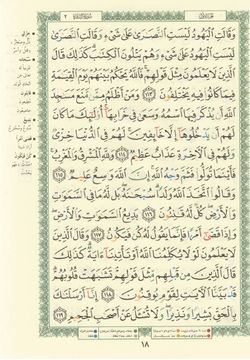 وَقَالَتِ ٱلْيَهُودُ لَيْسَتِ ٱلنَّصَٰرَىٰ عَلَىٰ شَىْءٍ وَقَالَتِ ٱلنَّصَٰرَىٰ
لَيْسَتِ ٱلْيَهُودُ عَلَىٰ شَىْءٍ وَهُمْ يَتْلُونَ ٱلْكِتَٰبَ كَذَٰلِكَ قَالَ
ٱلَّذِينَ لَا يَعْلَمُونَ مِثْلَ قَوْلِهِمْ فَٱللَّهُ يَحْكُمُ بَيْنَهُمْ يَوْمَ ٱلْقِيَٰمَةِ
فِيمَا كَانُوا۟ فِيهِ يَخْتَلِفُونَ ١١٣ وَمَنْ أَظْلَمُ مِمَّن مَّنَعَ مَسَٰجِدَ
ٱللَّهِ أَن يُذْكَرَ فِيهَا ٱسْمُهُۥ وَسَعَىٰ فِى خَرَابِهَآ أُو۟لَٰٓئِكَ مَا
كَانَ لَهُمْ أَن يَدْخُلُوهَآ إِلَّا خَآئِفِينَ لَهُمْ فِى ٱلدُّنْيَا خِزْىٌ
وَلَهُمْ فِى ٱلْءَاخِرَةِ عَذَابٌ عَظِيمٌ ١١٤ وَلِلَّهِ ٱلْمَشْرِقُ وَٱلْمَغْرِبُ
فَأَيْنَمَا تُوَلُّوا۟ فَثَمَّ وَجْهُ ٱللَّهِ إِنَّ ٱللَّهَ وَٰسِعٌ عَلِيمٌ ١١٥
وَقَالُوا۟ ٱتَّخَذَ ٱللَّهُ وَلَدًا سُبْحَٰنَهُۥ بَل لَّهُۥ مَا فِى ٱلسَّمَٰوَٰتِ
وَٱلْأَرْضِ كُلٌّ لَّهُۥ قَٰنِتُونَ ١١٦ بَدِيعُ ٱلسَّمَٰوَٰتِ وَٱلْأَرْضِ
وَإِذَا قَضَىٰٓ أَمْرًا فَإِنَّمَا يَقُولُ لَهُۥ كُن فَيَكُونُ ١١٧ وَقَالَ ٱلَّذِينَ
لَا يَعْلَمُونَ لَوْلَا يُكَلِّمُنَا ٱللَّهُ أَوْ تَأْتِينَآ ءَايَةٌ كَذَٰلِكَ
قَالَ ٱلَّذِينَ مِن قَبْلِهِم مِّثْلَ قَوْلِهِمْ تَشَٰبَهَتْ قُلُوبُهُمْ
قَدْ بَيَّنَّا ٱلْءَايَٰتِ لِقَوْمٍ يُوقِنُونَ ١١٨ إِنَّآ أَرْسَلْنَٰكَ
بِٱلْحَقِّ بَشِيرًا وَنَذِيرًا وَلَا تُسْـَٔلُ عَنْ أَصْحَٰبِ ٱلْجَحِيمِ ١١٩
١٨